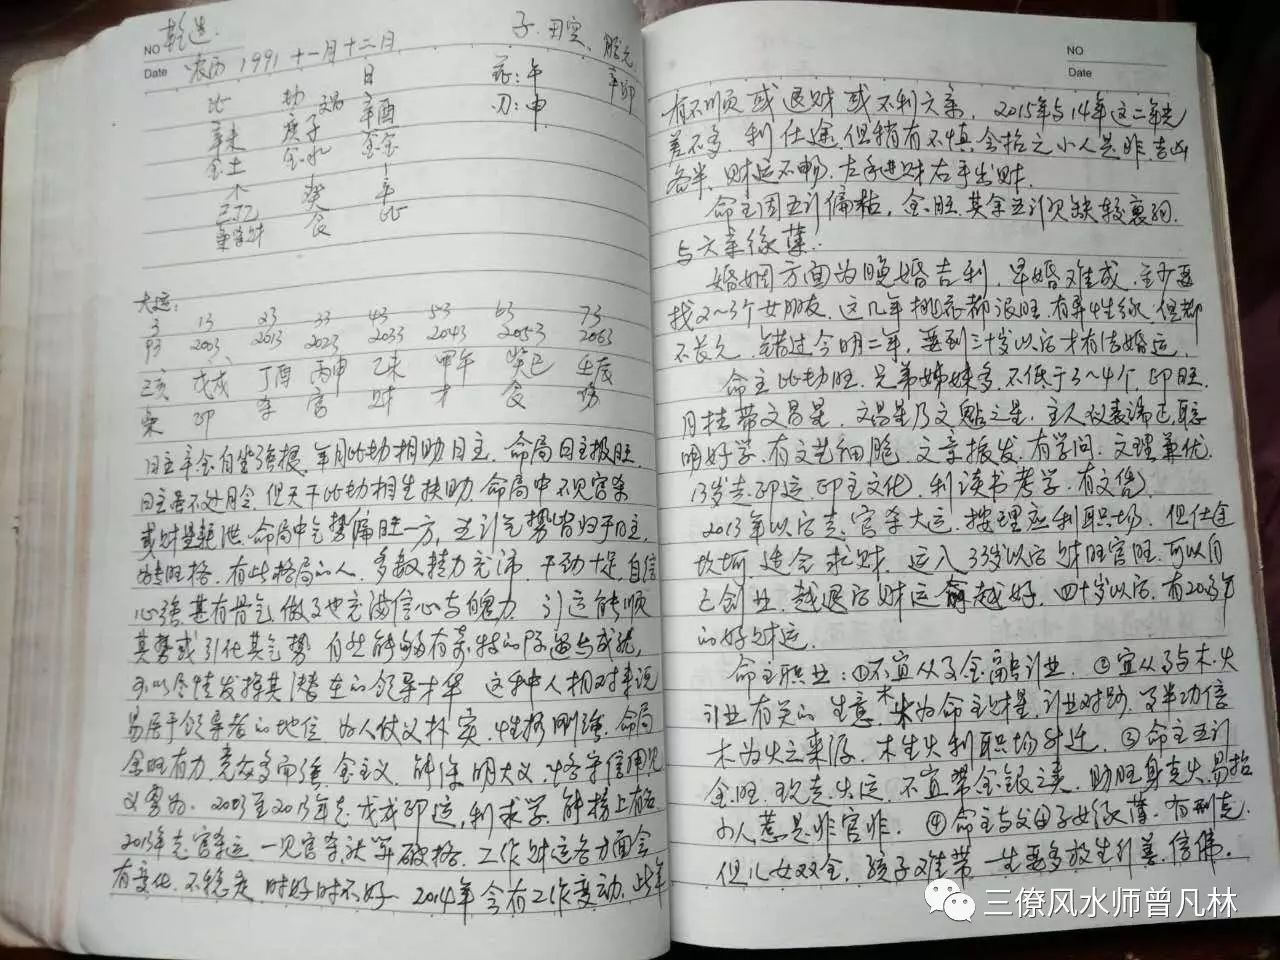 乾造.
NO
子.田宅、胎元
Date 农历 1991 十一月十二日
禄:午 辛卯
日
比 劫 文昌
刃:申
辛未 庚子 辛酉
金土 金水 金金
癸 辛
己丁乙 食 比
大运:
3 13 23 33 43 53 63 73
93 2003 2013 2023 2033 2043 2053 2063
己亥 戊戌 丁酉 丙申 乙未 甲午 癸巳 壬辰
枭 印 杀 官 财 才 食 伤
日主辛金自坐强根,年月比劫相助日主,命局日主极旺,
日主虽不处月令,但天干比劫相生扶助,命局中不见官杀
或财星耗泄,命局中气势偏旺一方,五行气势皆归于日主,
为专旺格,有此格局的人,多数精力充沛,干劲十足,自信
心强,甚有骨气,做事也充满信心与魄力,引运能顺
其势或引化其气势,自然能够有奇特的际遇与成就,
可以尽情发挥其潜在的领导才华,这种人相对来说
易居于领导者的地位,为人仗义朴实,性格刚强,命局
金旺有力,党众多而强,金主义,能深明大义,恪守信用,见
义勇为.2003至2013年走戊戌印运,利求学,能榜上有名
2013年走官杀运,一见官杀就算破格,工作财运各方面会
有变化,不稳定,时好时不好.2014年会有工作变动,此年
NO
Date
有不顺或退财或不利六亲,2015年与14年这二年也
差不多,利仕途,但稍有不慎,会招之小人是非,吉凶
各半,财运不畅,左手进财右手出财.
命主因五行偏枯,金旺,其余五行欠缺较衰弱.
与六亲缘薄.
婚姻方面为晚婚吉利,早婚难成,至少要
找2~3个女朋友,这几年桃花都很旺,有异性缘,但都
不长久,错过今明二年,要到三十岁以后才有结婚运.
命主比劫旺,兄弟姊妹多,不低于3~4个,印旺.
月柱带文昌星,文昌星乃文魁之星,主人仪表端正,聪
明好学,有文艺细胞,文章振发,有学问,文理兼优.
13岁走印运,印主文化,利读书考学,有文凭.
2013年以后走官杀大运,按理应利职场,但仕途
坎坷,适合求财,运入33岁以后财旺官旺,可以自
己创业,越退后财运越好,四十岁以后,有20多年
的好财运.
命主职业:①不宜从事金融行业.②宜从事与木.火
行业有关的生意,木为命主财星,行业对路,事半功倍
木为火之来源,木生火利职场升迁.③命主五行
金旺,现走火运,不宜带金银之类,助旺身克火,易招
小人惹是非官非.④命主与父母子女缘薄.有刑克.
但儿女双全,孩子难带,一生要多放生行善,信佛.
三僚风水师曾凡林